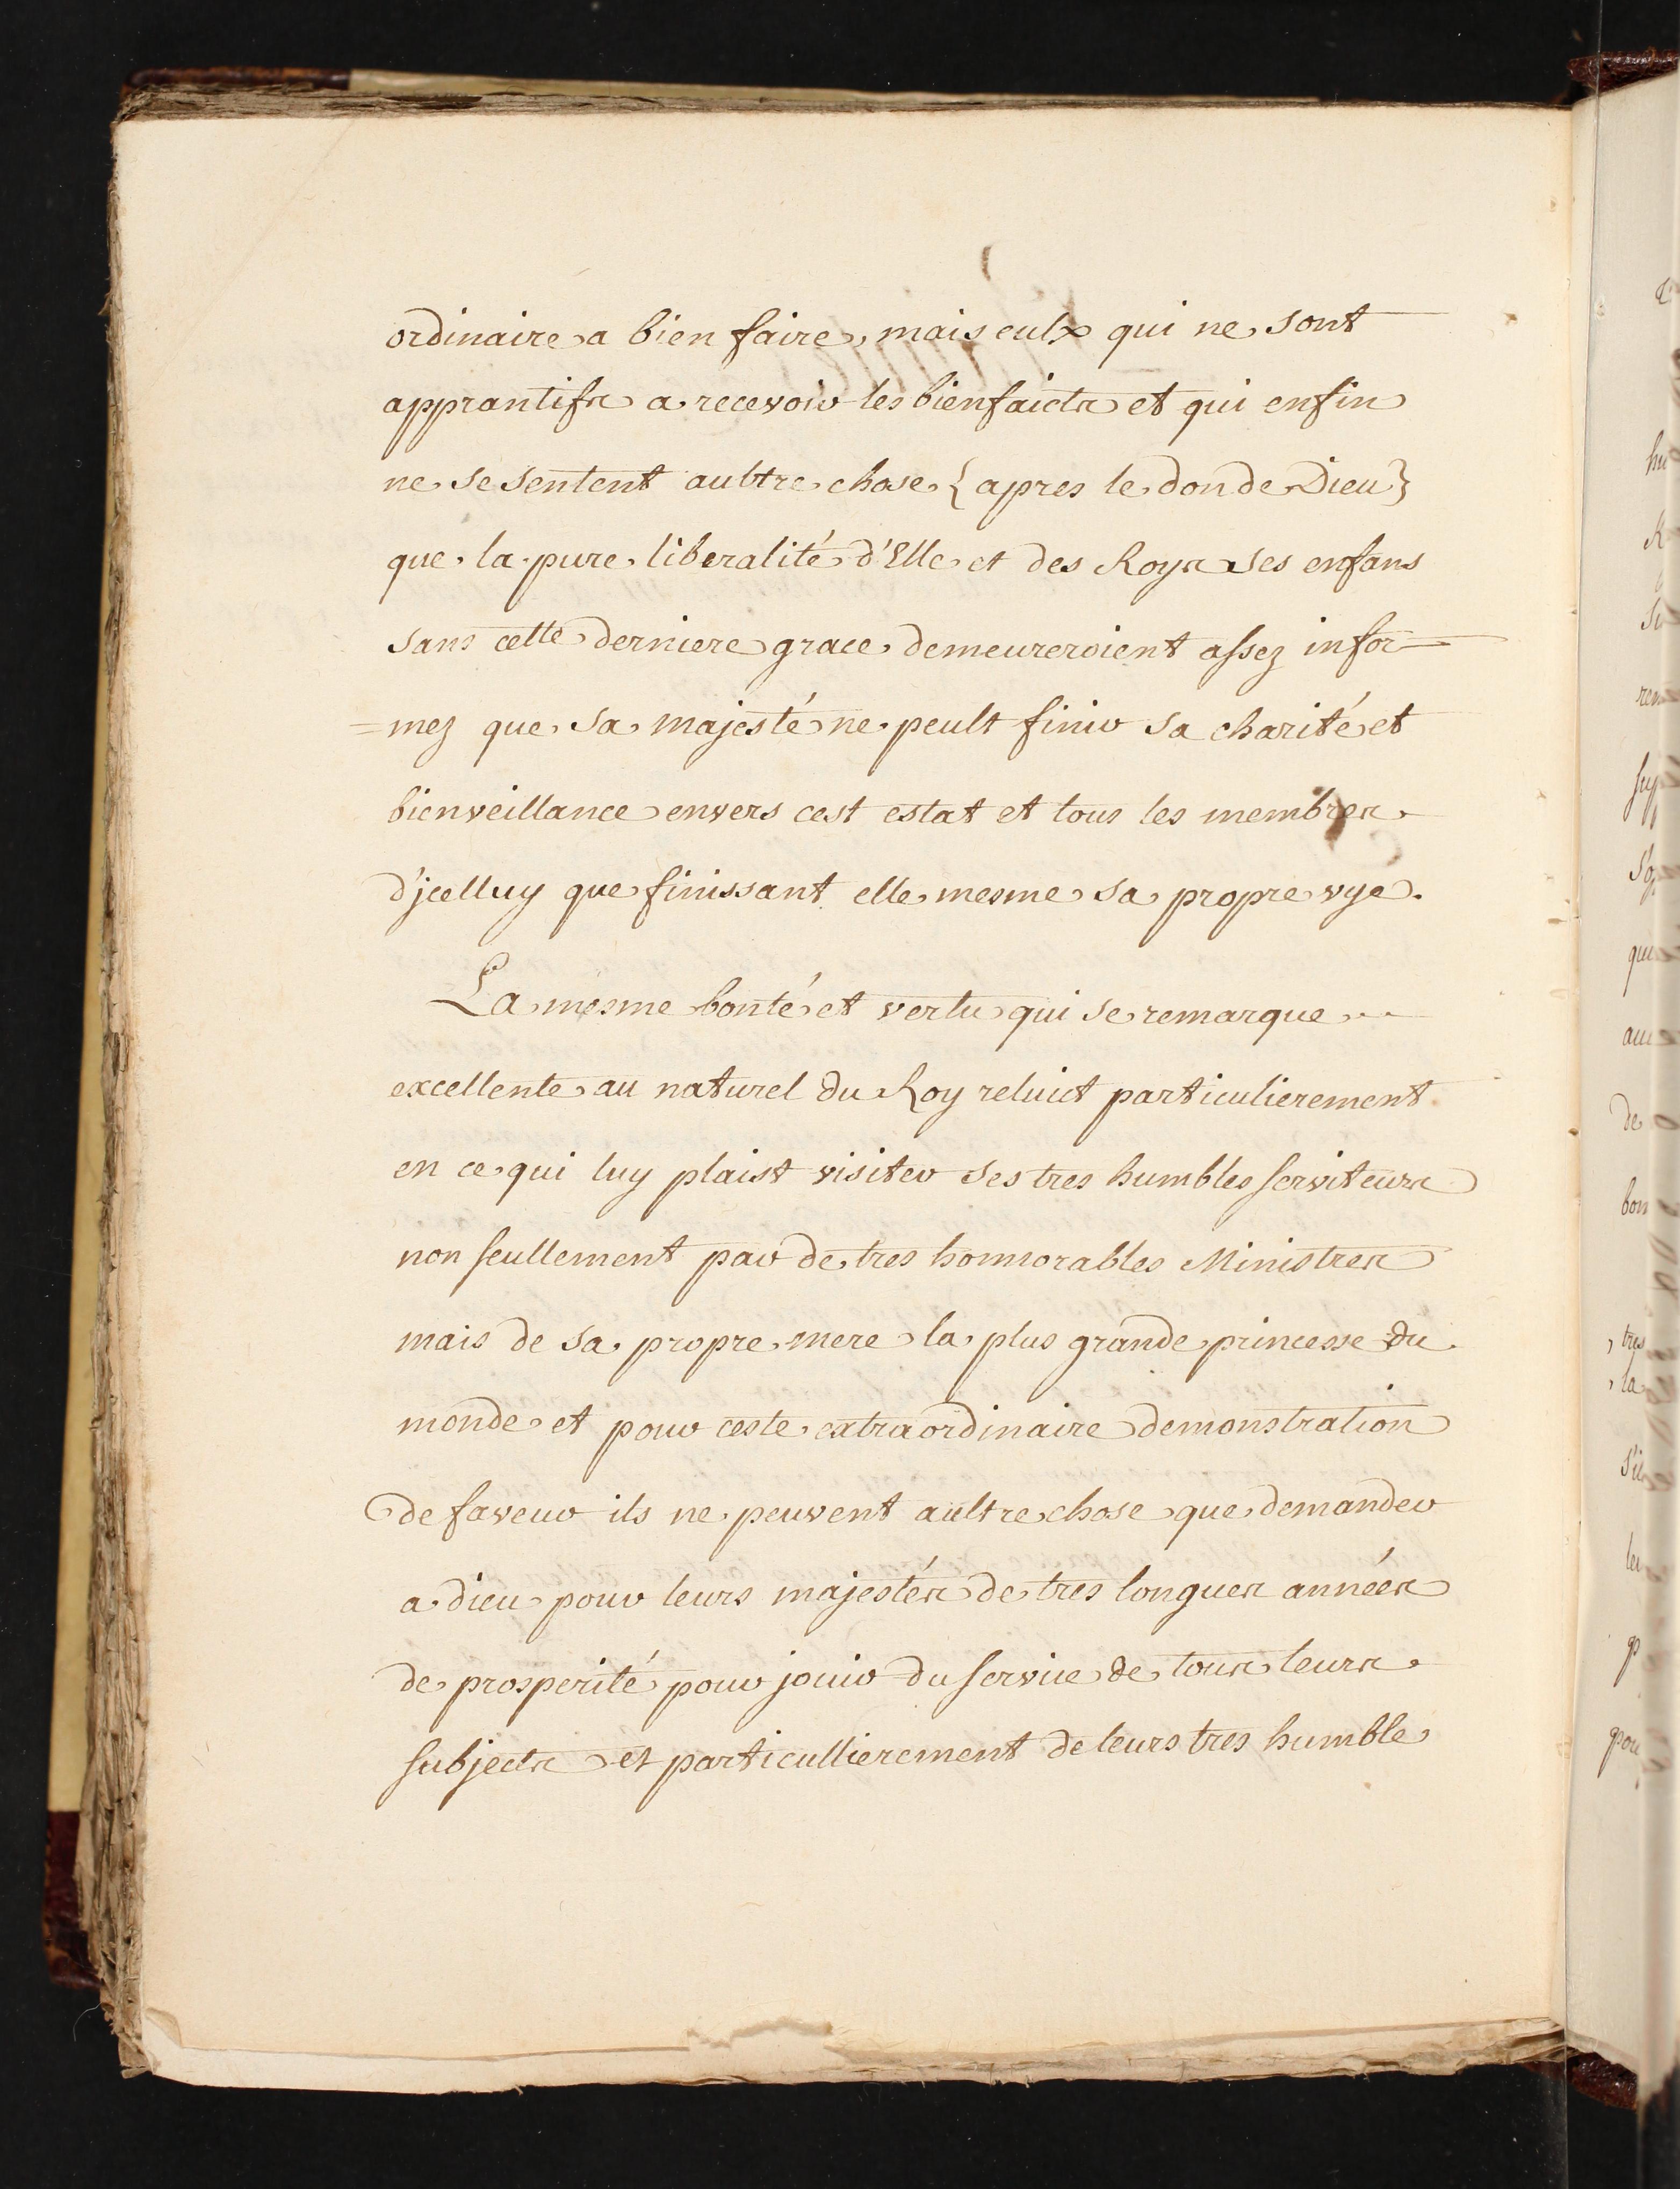 ordinaire a bien faire, mais eulx qui ne sont
apprantifs a recevoir les bienfaicts et qui enfin
ne se sentent aultre chose {apres le don de Dieu}
que la pure liberalité d'Elle et des Roys ses enfans
sans cette derniere grace demeureroient assez infor=
=mez que sa majesté ne peult finir sa charité et
bienveillance envers cest estat et tous les membres
d'jcelluy que finissant elle mesme sa propre vye.
La mesme bonté et vertu qui se remarque
excellente au naturel du Roy reluict particulierement
en ce qui luy plaist visiter ses tres humbles serviteurs
non seullement par de tres honnorables Ministres
mais de sa propre mere la plus grande princesse du
monde et pour ceste extraordinaire demonstration
de faveur ils ne peuvent aultre chose que demander
a dieu pour leurs majestés de tres longues années
de prosperité pour jouir du service de tous leurs
subjects et particullierement de leurs tres humble